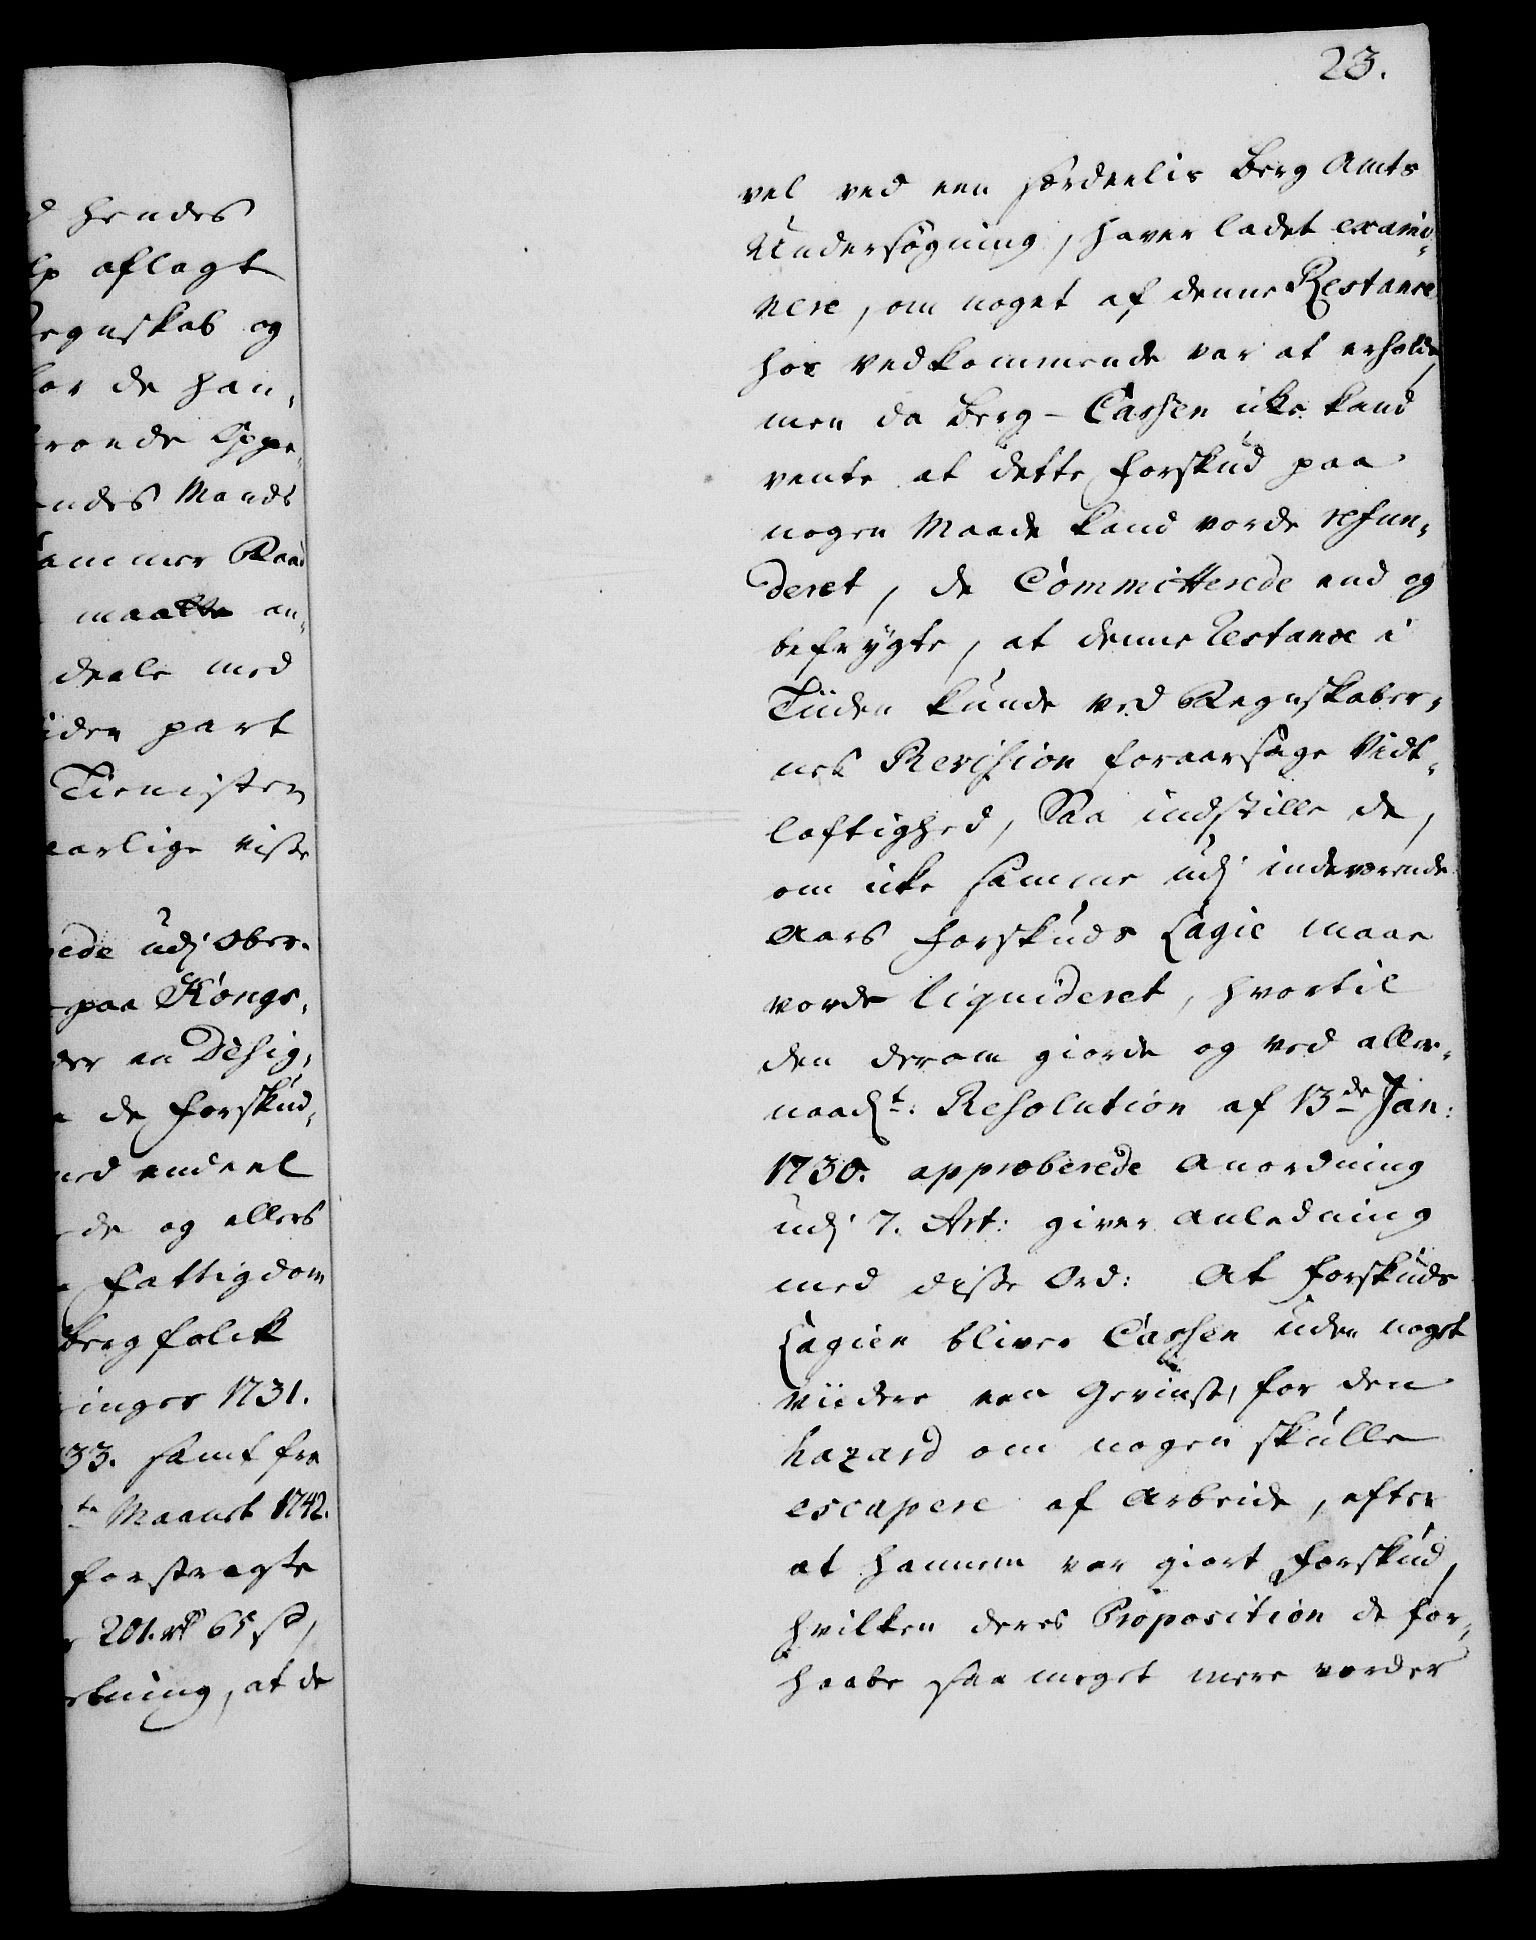 d hendes
lp aflagt
Regnskab og
for de han,
rende Ope,
endes Mands
Cammer Raad
maatte an,
deele med
iden part
Tienisten
aarlige visse
rede udj Ober-
paa Kongs,
der en Desig,
de Forskud,
med endeel
de og ellers
Fattigdom
Bergfolck
inger 1731.
33. samt fra
te Maanet 1742.
forstragte
201. rdr 65 s,
ebning, at de
23.
vel ved een særdeelis Berg Amts
Undersøgning, haver ladet exami-
nere, om noget af denne Restance
hos vedkommende var at erholde,
men da Berg-Cassen icke kand
vente at dette Forskud paa
nogen Maade kand vorde refun,
deret, de Committerede end og
befrygte, at denne Restance i
Tiiden kunde ved Regnskaber,
nes Revision foraarsage Vidt,
løftighed, Saa indstille de,
om icke samme udj indeværende
Aars Forskuds Lagie maae
vorde liquideret, hvortil
den derom giorde og ved aller-
naadt: Resolution af 13de Jan:
1730. approberede Anordning
udj 7. Art: giver Anledning
med disse Ord: At Forskuds
Lagien bliver Cassen uden noget
viidere een Gevinst, for den
hazard om nogen skulle
escapere af Arbeide, efter
at hannem var giort Forskud,
hvilken deres Proposition de for,
haabe saa meget mere vorder